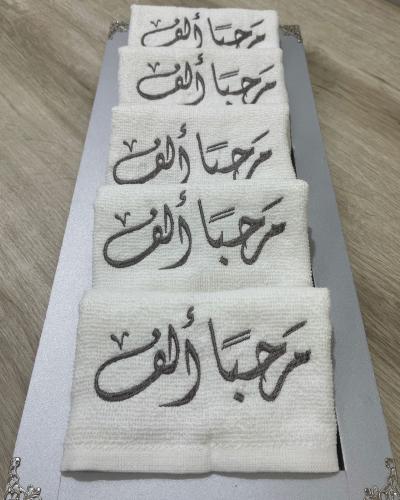 مَرحبًا ألف
مَرحبًا ألف
مَرحبًا ألف
مَرحبًا ألف
مَرحبًا ألف